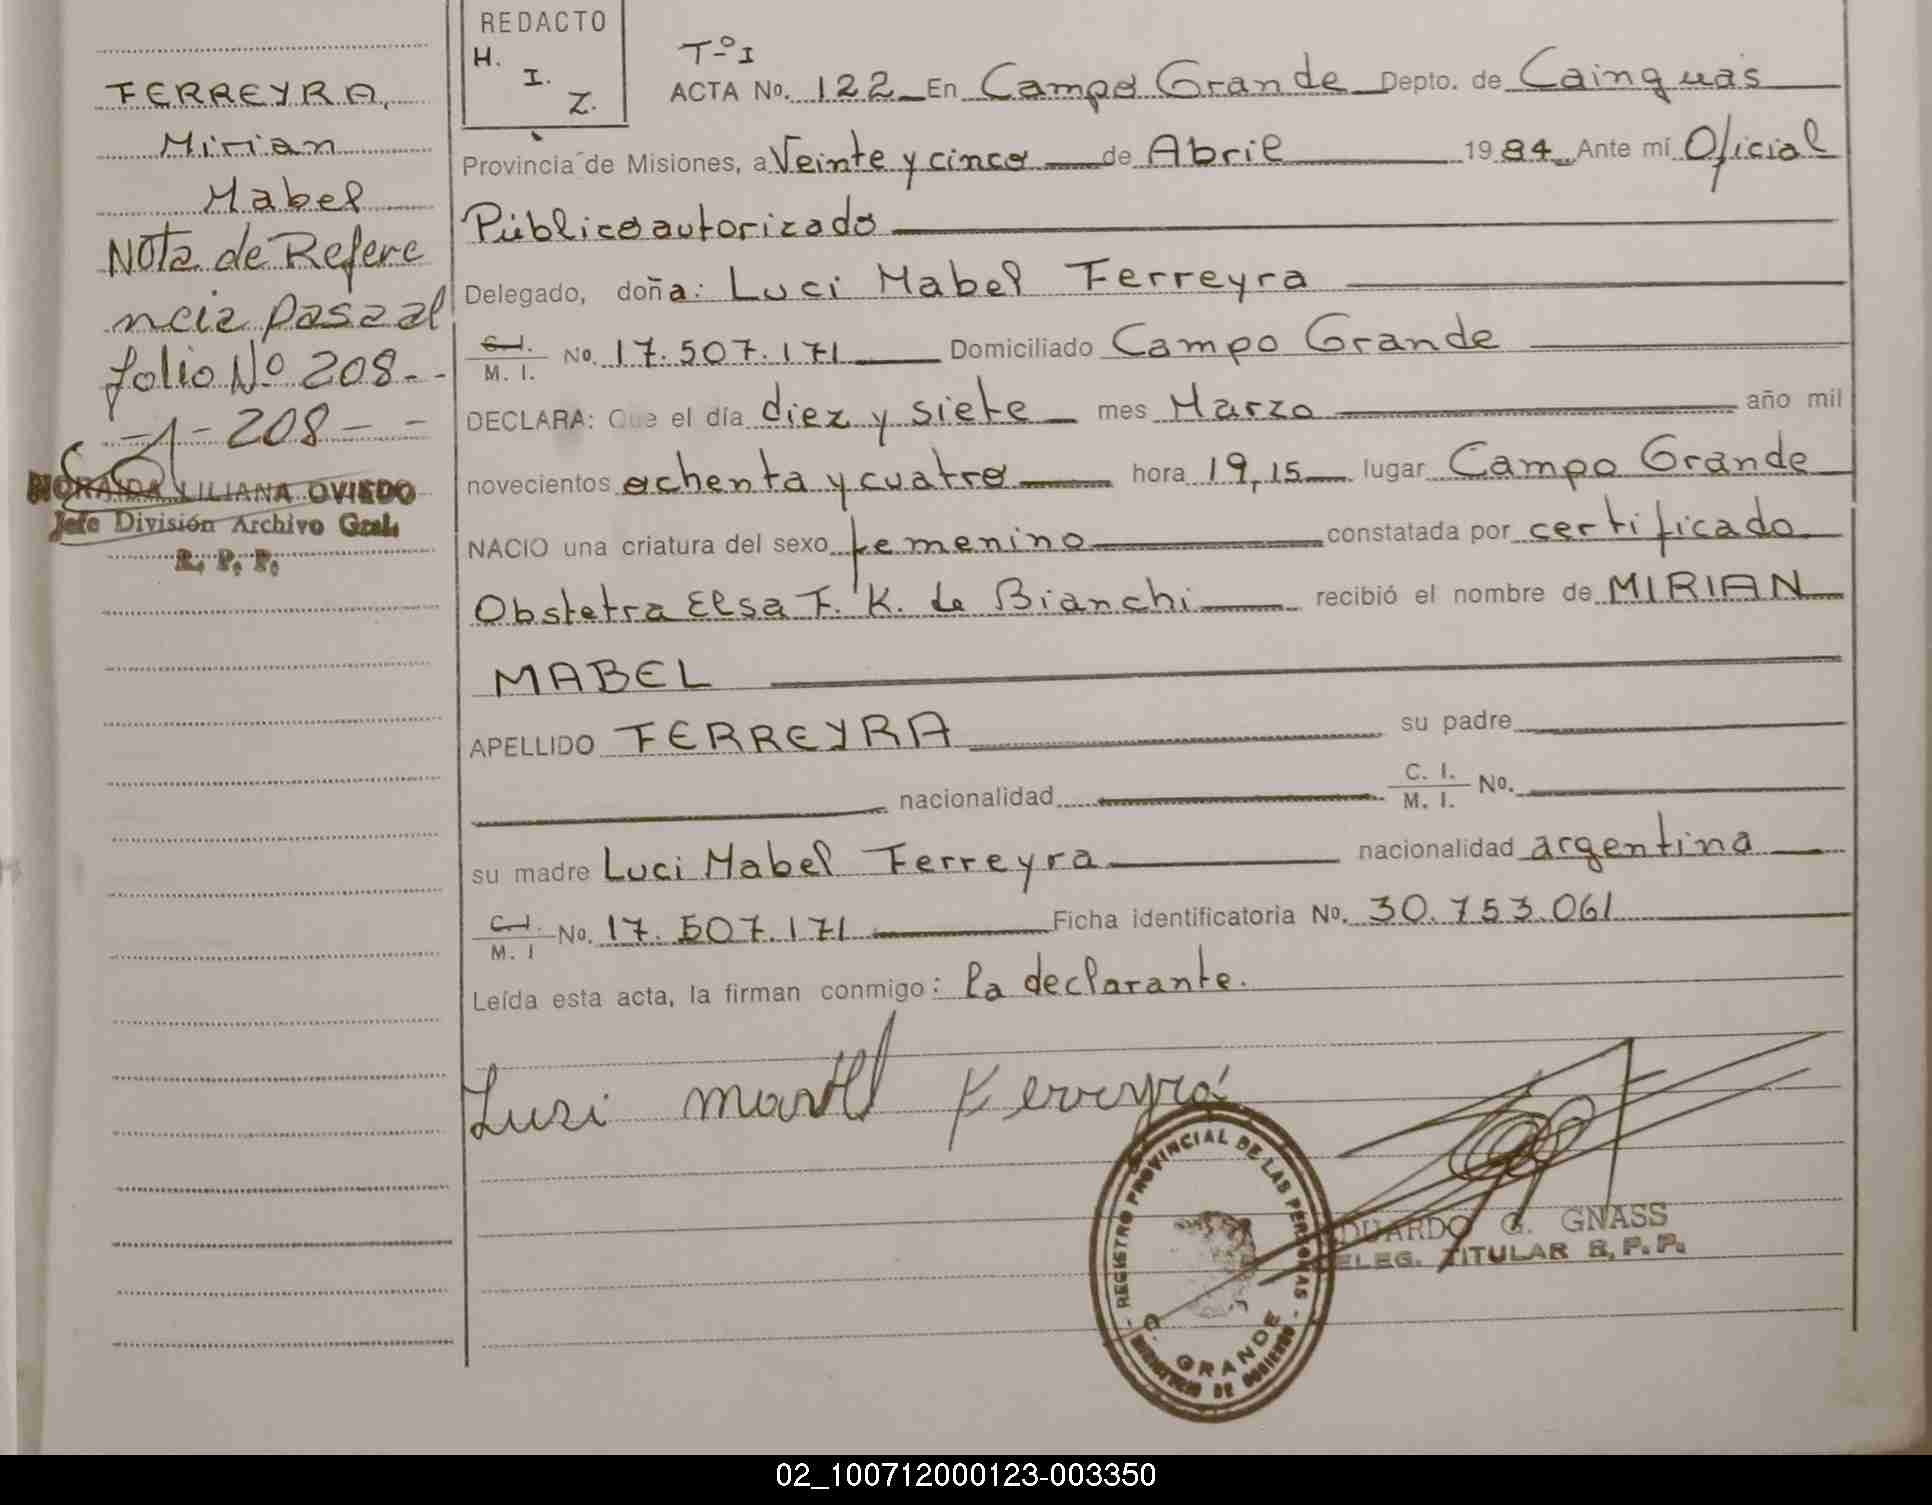 REDACTO
H.
I.
Z.
FERREYRA,
Mirian
Mabel
Nota de Refere
ncia pasa al
folio Nº 208--
-1-208--
NORAIDA LILIANA OVIEDO
Jefe División Archivo Gral.
R. P. P.
Tº I
ACTA No. 122 En Campo Grande Depto. de Cainguas
Provincia de Misiones, a Veinte y cinco de Abril 1984 Ante mi Oficial
Público autorizado
Delegado, doña: Luci Mabel Ferreyra
C.I. M. I. No. 17.507.171 Domiciliado Campo Grande
DECLARA: Que el día diez y siete mes Marzo año mil
novecientos ochenta y cuatro hora 19,15 lugar Campo Grande
NACIO una criatura del sexo femenino constatada por certificado
Obstetra Elsa F. K. de Bianchi recibió el nombre de MIRIAN
MABEL
APELLIDO FERREYRA su padre
nacionalidad C. I. M. I. No.
su madre Luci Mabel Ferreyra nacionalidad argentina
C.I. M. I No. 17.507.171 Ficha identificatoria No. 30.753.061
Leída esta acta, la firman conmigo: la declarante.
Luzi Ferreyra
- REGISTRO PROVINCIAL DE LAS PERSONAS -
MINISTERIO DE GOBIERNO
C. GRANDE
DUARDO G. GNASS
ELEG. TITULAR R. P. P.
02_100712000123-003350